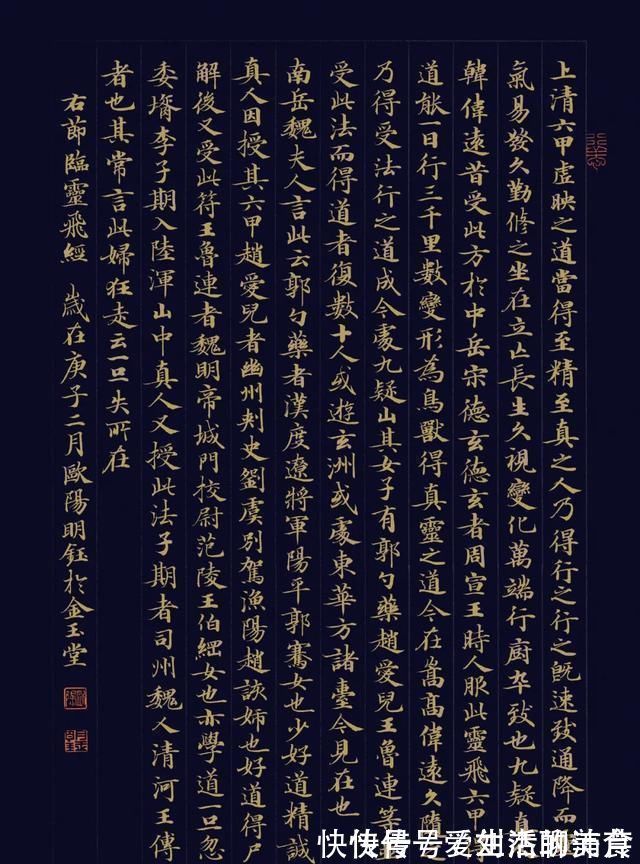 上清六甲虛映之道當得至精至真之人乃得行之行之既速致通降而
氣易發久勤修之坐在立亡長生久視變化萬端行廚卒致也九疑真
韓偉遠昔受此方於中岳宋德玄德玄者周宣王時人服此靈飛六甲
道能一日行三千里數變形為鳥獸得真靈之道今在嵩高偉遠久隨
乃得受法行之道成今處九疑山其女子有郭勺藥趙愛兒王魯連等
受此法而得道者復數十人或遊玄洲或處東華方諸臺今見在也
南岳魏夫人言此云郭勺藥者漢度遼將軍陽平郭騫女也少好道精誠
真人因授其六甲趙愛兒者幽州刺史劉虞別駕漁陽趙該姊也好道得尸
解後又受此符王魯連者魏明帝城門校尉范陵王伯綱女也亦學道一旦忽
委壻李子期入陸渾山中真人又授此法子期者司州魏人清河王傅
者也其常言此婦狂走云一旦失所在
右節臨靈飛經 歲在庚子二月歐陽明鈺於金玉堂